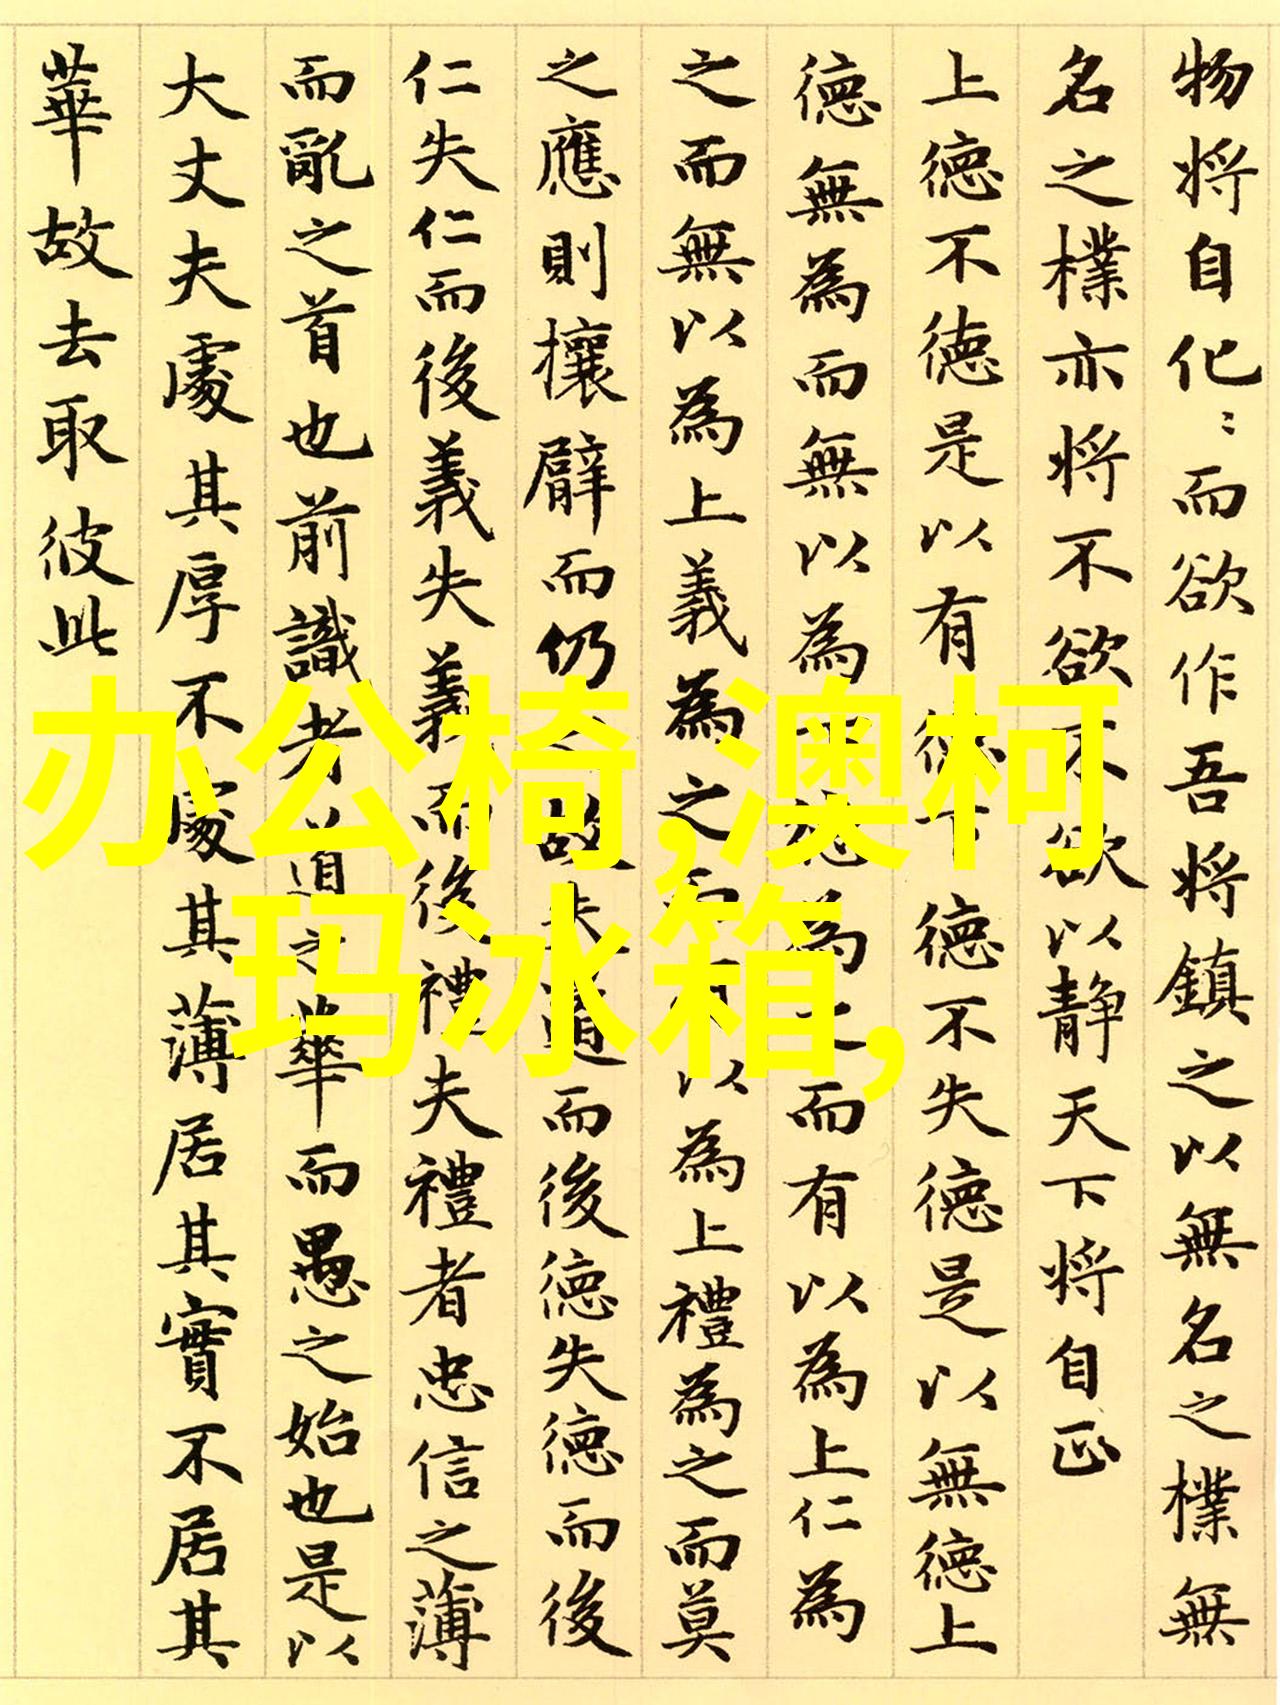 物将自化：而欲作吾将鎮之以無名之樸無
名之樸亦将不欲不欲以静天下将自正
上徳不徳是以有徳下徳不失徳是以無徳上
徳無為而無以為下徳為之而有以為上仁為
之而無以為上義為之而有以為上禮為之而莫
之應則攘臂而仍之故失道而後徳失徳而後
仁失仁而後義失義而後禮夫禮者忠信之薄
而亂之首也前識者道之華而愚之始也是以
大丈夫處其厚不處其薄居其實不居其
華故去取彼此
办公椅,澳柯
玛冰箱,